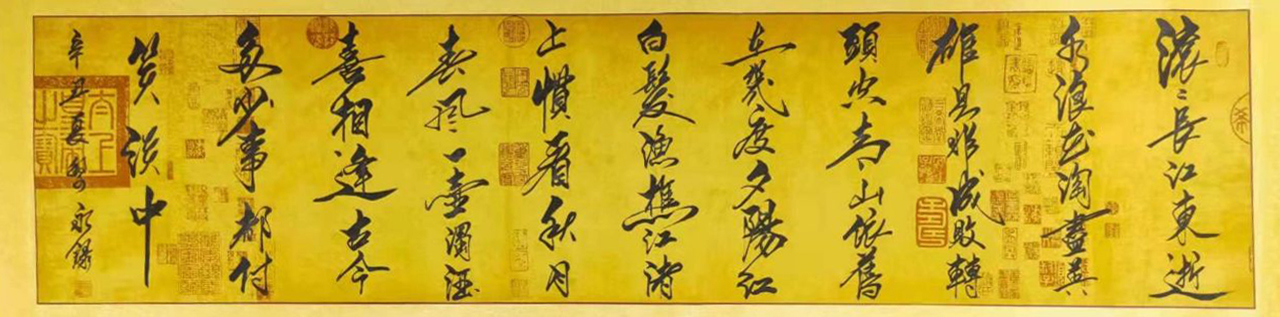 滚〻長江東逝
水浪花淘盡英
雄是非成敗轉
頭空青山依舊
在幾度夕陽红
白髮漁樵江渚
上慣看秋月
春風一壺濁酒
喜相逢古今
多少事都付
笑談中
辛丑夏 永
太上皇帝之寶